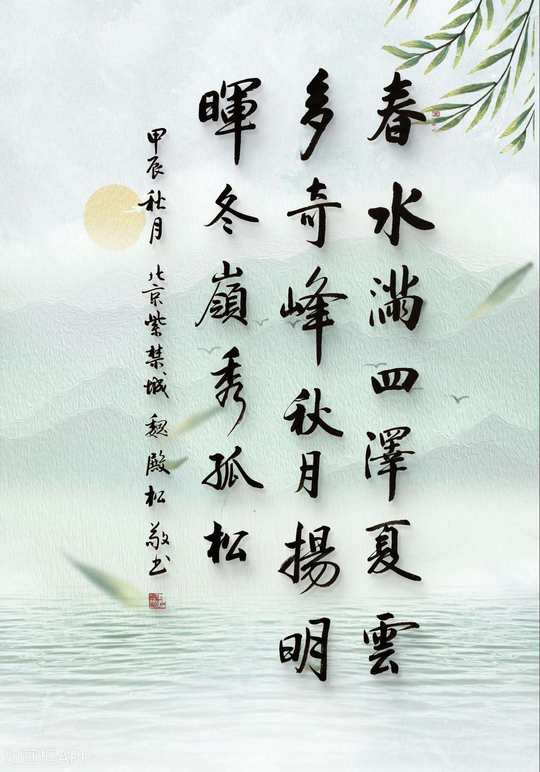 春水滿四澤夏雲
多奇峰秋月揚明
暉冬嶺秀孤松
甲辰秋月 北京紫禁城 魏殿松 敬书